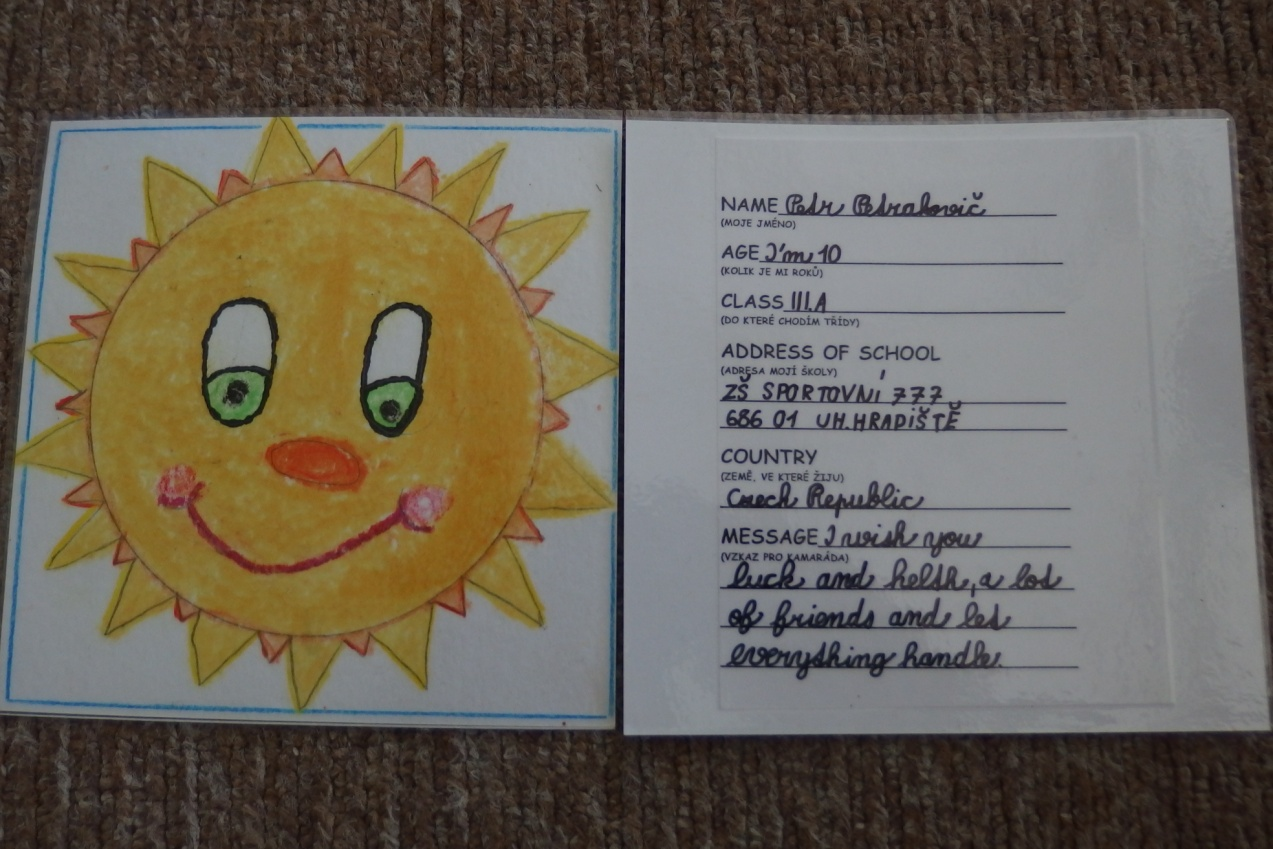 NAME Petr Petrakovič
(MOJE JMÉNO)
AGE I'm 10
(KOLIK JE MI ROKŮ)
CLASS III.A
(DO KTERÉ CHODÍM TŘÍDY)
ADDRESS OF SCHOOL
(ADRESA MOJÍ ŠKOLY)
ZŠ SPORTOVNÍ 777
686 01 UH.HRADIŠTĚ
COUNTRY
(ZEMĚ, VE KTERÉ ŽIJU)
Czech Republic
MESSAGE I wish you
(VZKAZ PRO KAMARÁDA)
luck and helth, a lot
of friends and let
everything handle.